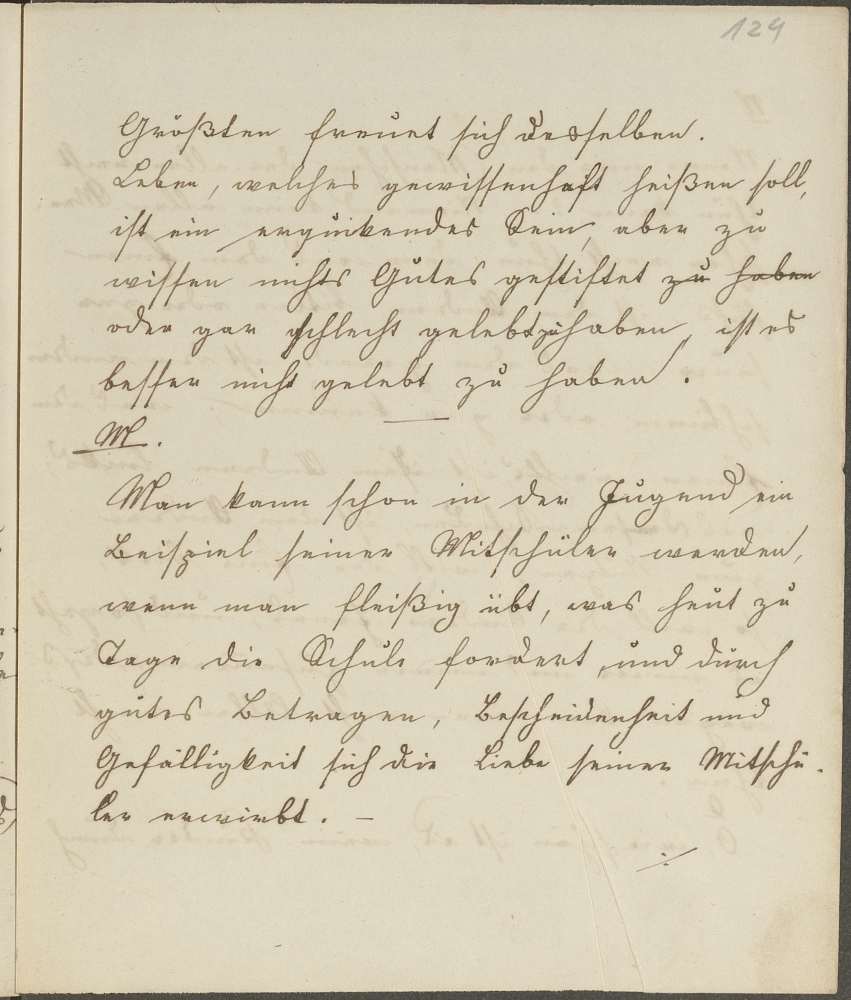 124
Größten freuet sich desselben.
Leben, welches gewissenhaft heißen soll,
ist ein erquikendes Sein, aber zu
wissen nichts Gutes gestiftet zu haben
oder gar schlecht gelebt zu haben, ist es
besser nicht gelebt zu haben.
M.
Man kann schon in der Jugend ein
Beispiel seiner Mitschüler werden,
wenn man fleißig übt, was heut zu
Tage die Schule fordert, und durch
gutes Betragen, Bescheidenheit und
Gefälligkeit sich die Liebe seiner Mitschü-
ler erwirbt. –